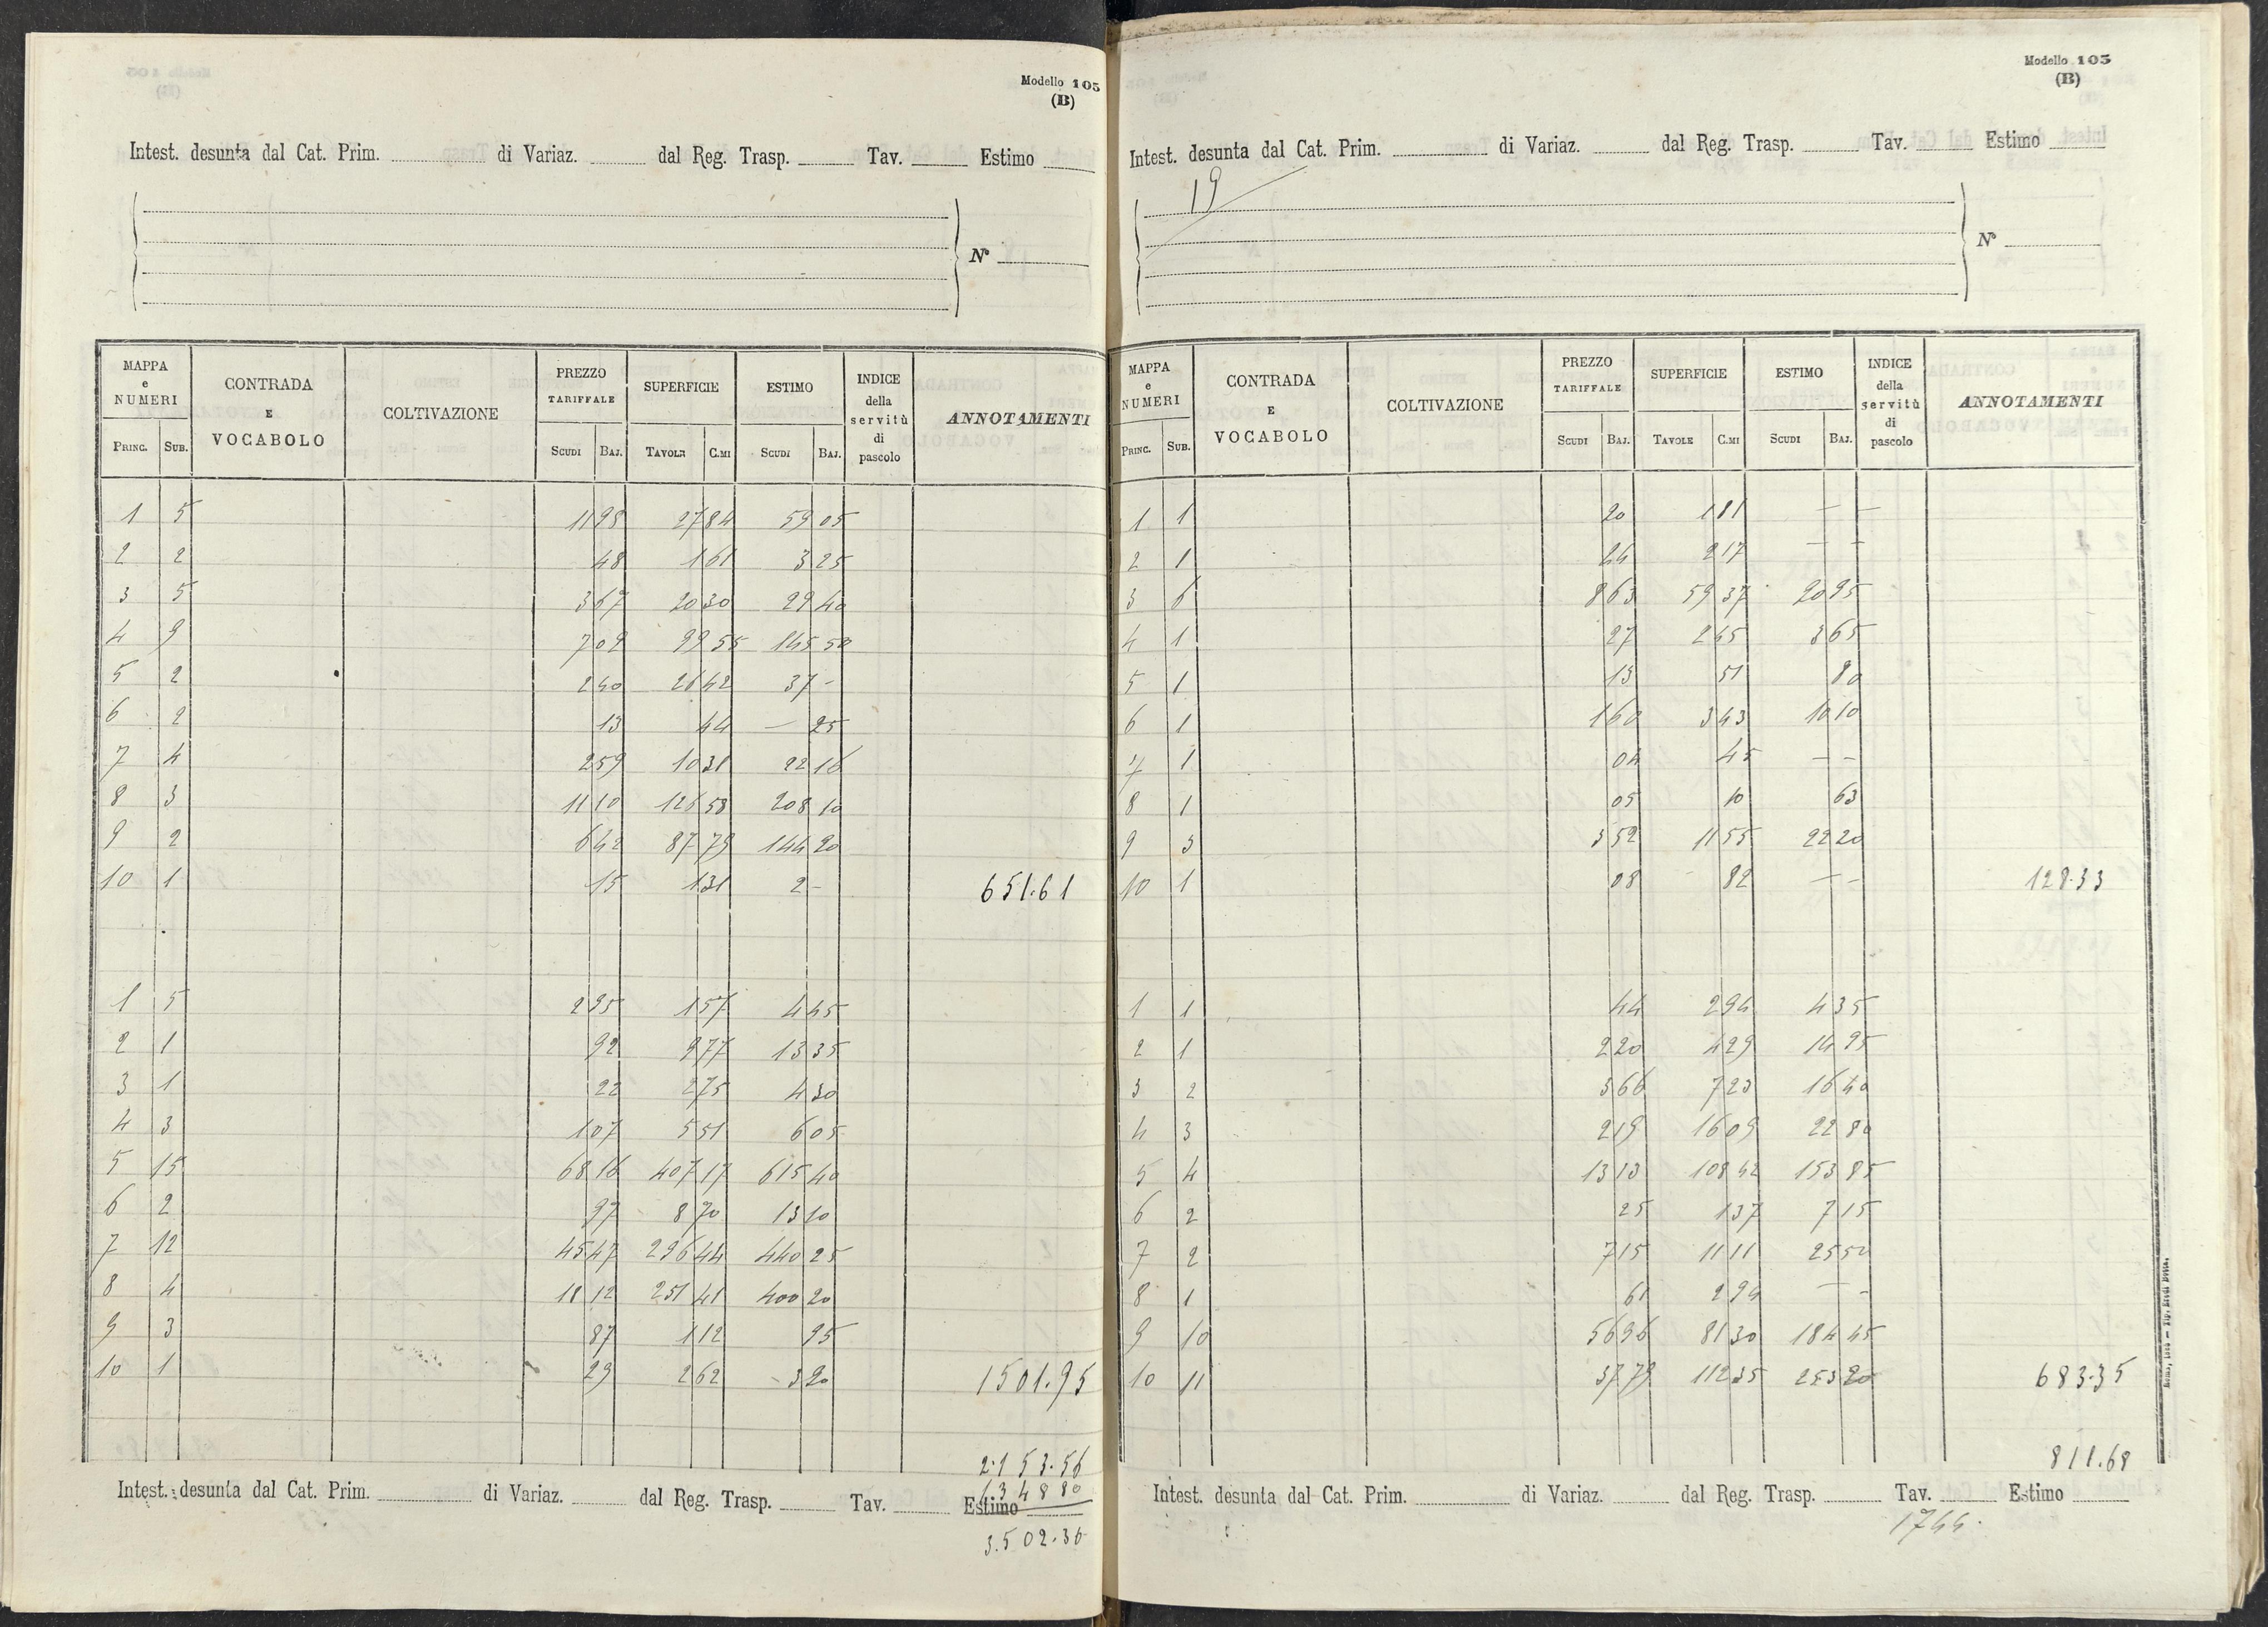 Modello 105
(B)
Intest. desunta dal Cat. Prim. di Variaz. dal Reg. Trasp. Tav. Estimo
N°
MAPPA e NUMERI CONTRADA E VOCABOLO COLTIVAZIONE PREZZO TARIFFALE SUPERFICIE ESTIMO INDICE della servitù di pascolo ANNOTAMENTI
PRINC. SUB. SCUDI BAJ. TAVOLE C.MI SCUDI BAJ.
1 5 11 98 27 84 59 05
2 2 48 1 61 3 25
3 5 3 67 20 30 29 40
4 9 7 09 99 55 145 50
5 2 2 40 26 42 37 -
6 2 13 44 — 25
7 4 2 59 10 31 22 16
8 3 11 10 126 58 208 10
9 2 6 42 87 79 144 20
10 1 15 1 31 2 - 651.61
1 5 2 95 1 57 4 45
2 1 92 9 77 13 35
3 1 22 2 75 4 30
4 3 1 07 5 51 6 05
5 15 68 16 407 17 615 40
6 2 97 8 70 13 10
7 12 45 47 296 44 440 25
8 4 11 12 251 41 400 20
9 3 87 1 12 95
10 1 29 2 62 3 20 1501.95
2.153.56
1348 80
3.502.36
Intest. desunta dal Cat. Prim. di Variaz. dal Reg. Trasp. Tav. Estimo
Modello 105
(B)
Intest. desunta dal Cat. Prim. di Variaz. dal Reg. Trasp. Tav. Estimo
19
N°
MAPPA e NUMERI CONTRADA E VOCABOLO COLTIVAZIONE PREZZO TARIFFALE SUPERFICIE ESTIMO INDICE della servitù di pascolo ANNOTAMENTI
PRINC. SUB. SCUDI BAJ. TAVOLE C.MI SCUDI BAJ.
1 1 20 1 81 — —
2 1 24 2 17 — —
3 6 8 63 59 37 20 95
4 1 27 2 65 3 65
5 1 13 51 80
6 1 1 60 3 43 10 10
7 1 04 45 — —
8 1 05 10 63
9 3 3 52 11 55 22 20
10 1 08 82 — — 128.33
1 1 44 2 94 4 35
2 1 2 20 4 29 14 95
3 2 3 66 7 23 16 40
4 3 2 19 16 09 22 80
5 4 13 13 108 42 153 85
6 2 25 1 37 7 15
7 2 7 15 11 11 25 50
8 1 61 2 94 — —
9 10 56 96 81 30 184 45
10 11 37 79 112 35 253 20 683.35
811.68
Intest. desunta dal Cat. Prim. di Variaz. dal Reg. Trasp. Tav. Estimo
1744.